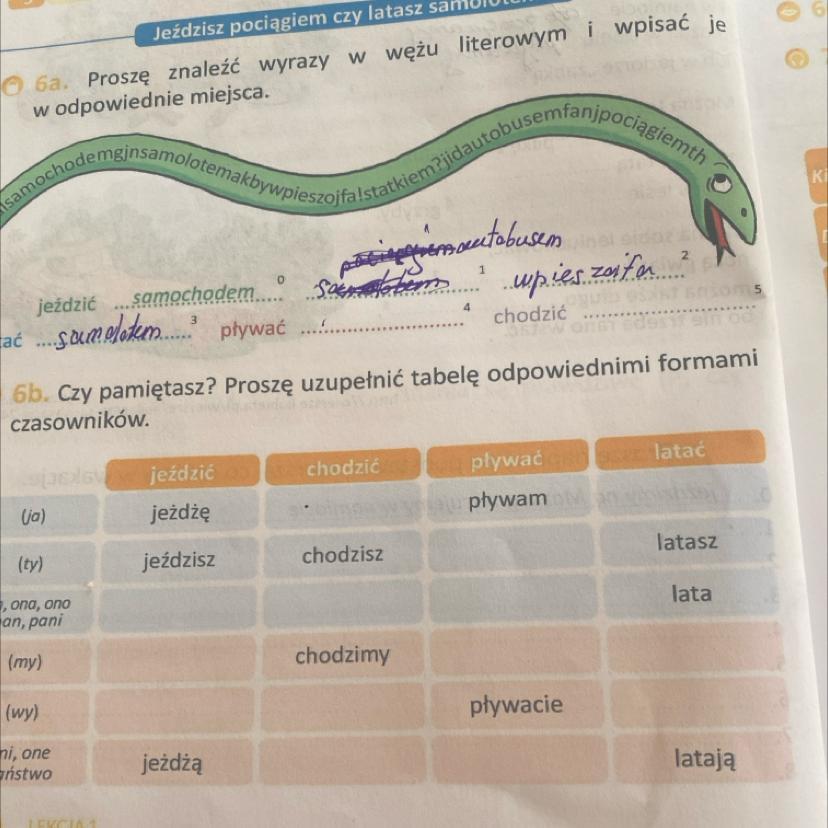 Jeździsz pociągiem czy latasz
6a. Proszę znaleźć wyrazy w wężu literowym i wpisać je
w odpowiednie miejsca.
samochodemgjnsamolotemakbywpieszojfa!statkiem?jidautobusemfanjpociągiemth
autobusem
jeździć samochodem 0 1 wpieszojfa 2
ać samolotem 3 pływać 4 chodzić 5
6b. Czy pamiętasz? Proszę uzupełnić tabelę odpowiednimi formami
czasowników.
jeździć chodzić pływać latać
(ja) jeżdżę pływam
(ty) jeździsz chodzisz latasz
, ona, ono lata
an, pani
(my) chodzimy
(wy) pływacie
ni, one jeżdżą latają
aństwo
LEKCJA 1